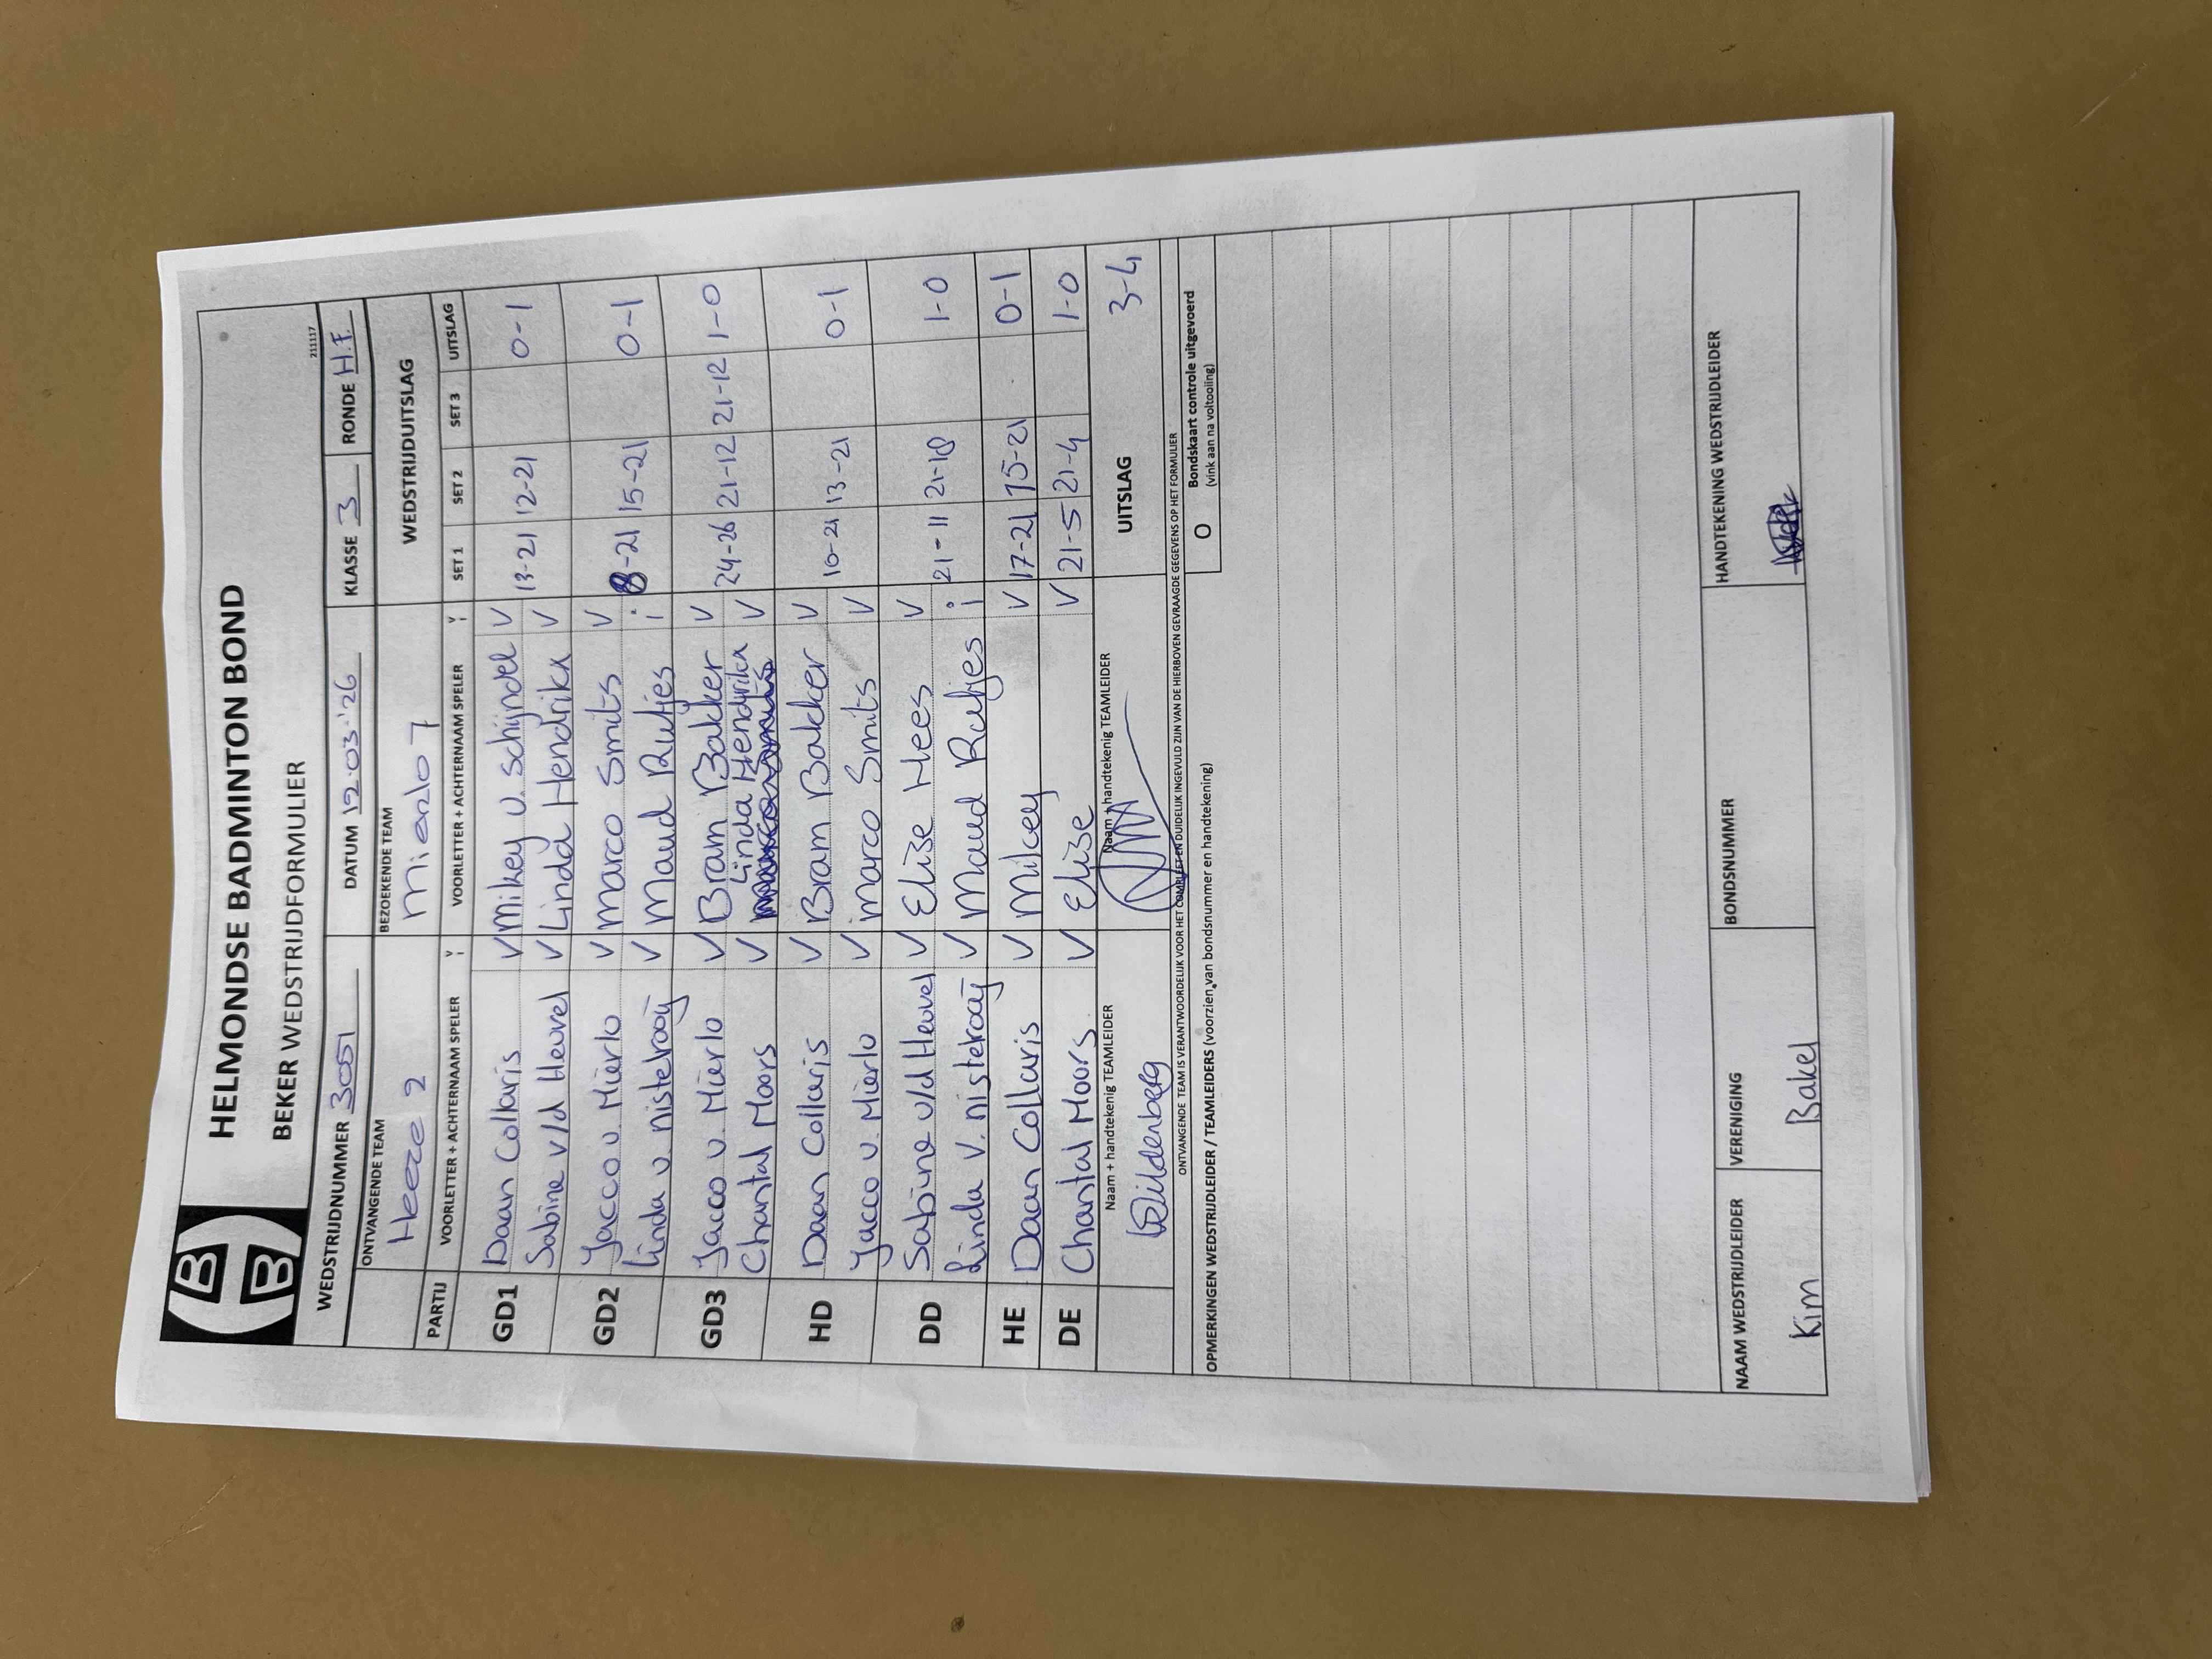 HELMONDSE BADMINTON BOND
BEKER WEDSTRIJDFORMULIER
211117
WEDSTRIJDNUMMER 3051 DATUM 12-03-'26 KLASSE 3 RONDE H.F.
ONTVANGENDE TEAM BEZOEKENDE TEAM WEDSTRIJDUITSLAG
Heeze 2 Mierlo 7
PARTIJ VOORLETTER + ACHTERNAAM SPELER V i VOORLETTER + ACHTERNAAM SPELER V i SET 1 SET 2 SET 3 UITSLAG
GD1 Daan Collaris V Mikey v. Schijndel V 13-21 12-21 0-1
Sabine v/d Heuvel V Linda Hendrikx V
GD2 Jacco v. Mierlo V Marco Smits V 8-21 15-21 0-1
Linda v. nistelrooij V Maud Rutjes i
GD3 Jacco v. Mierlo V Bram Bakker V 24-26 21-12 21-12 1-0
Chantal Moors V Linda Hendrikx V
HD Daan Collaris V Bram Bakker V 10-21 13-21 0-1
Jacco v. Mierlo V Marco Smits V
DD Sabine v/d Heuvel V Elize Hees V 21-11 21-18 1-0
Linda v. nisterooij V Maud Rutjes i
HE Daan Collaris V Mikey V 17-21 15-21 0-1
DE Chantal Moors V Elize V 21-5 21-4 1-0
Naam + handtekenig TEAMLEIDER Naam + handtekenig TEAMLEIDER UITSLAG 3-4
ONTVANGENDE TEAM IS VERANTWOORDELIJK VOOR HET COMPLEET EN DUIDELIJK INGEVULD ZIJN VAN DE HIERBOVEN GEVRAAGDE GEGEVENS OP HET FORMULIER
O Bondskaart controle uitgevoerd
(vink aan na voltooiing)
OPMERKINGEN WEDSTRIJDLEIDER / TEAMLEIDERS (voorzien van bondsnummer en handtekening)
NAAM WEDSTRIJDLEIDER VERENIGING BONDSNUMMER HANDTEKENING WEDSTRIJDLEIDER
Kim Bakel